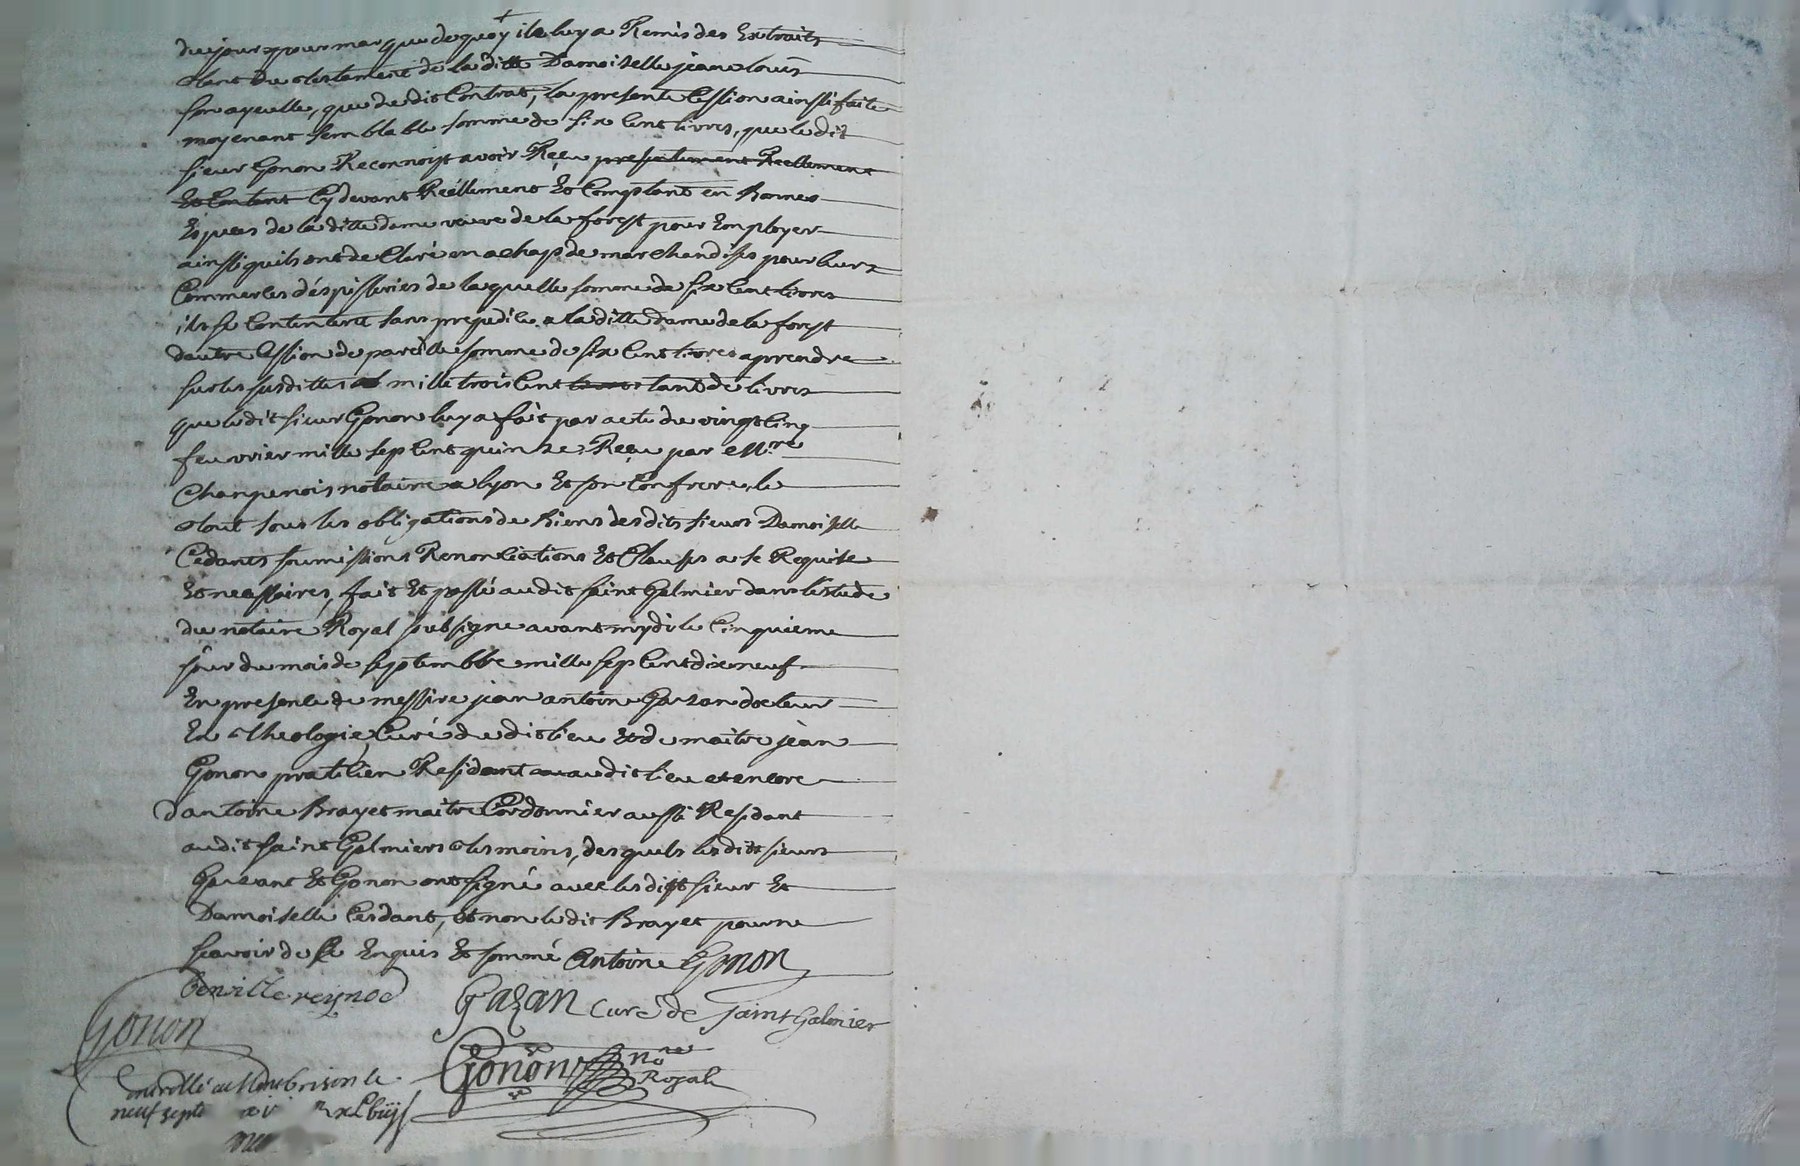 dujour pour marque de quoy ils luy a Remis des Extraits
tant du testament de la ditte Damoiselle jeane
son ayeulle, que dudit Contrat, la presente Cession ainssi faite
moyenant semblable somme de six Cent livres, que le dit
sieur Gonon Reconnoist avoir Reçu presentement Reellement
Et Contant Cydevant Réellement Et Comptant en Bonnes
Especes de la ditte dame veuve de la forest pour Employer
ainssi quils ont de Claré en achap de marchandises pour leurs
Commerces déspisseries de laquelle somme de six Cent livres
ils se Contentent sans prejudice a la ditte dame de la forest
dautre Cession de pareille somme de six Cent livres aprendre
sur les susdittes mille trois Cent tant de livres
que le dit sieur Gonon luy a fait par acte du vingt Cinq
feuvrier mille sept Cent quinze Reçu par Mre
Champenois notaire a lyon Et son Confrere, le
tout sous les obligations de Biens desdits sieurs Damoiselle
Cedants soumissions Renonciations Et Clauses a se Requise
Et necessaires, fait Et passé audit saint Galmier dans lestude
du notaire Royal subsigne avant mydi le Cinquieme
jour du mois de septembbre mille sept Cent dixneuf
En presence de messire jean antoine Gazan docteur
En theologie Curé du dit lieu Et de maitre jean
Gonon praticien Residant audit lieu et encore
dantoine Brayet maitre Cordonnier aussi Residant
audit saint Galmiers tesmoins, desquels lesdits sieurs
Gazant Et Gonon ont signé avec lesdits sieur Et
Damoiselle Cesdants, et non le dit Brayet pour ne
scavoir de Ce Enquis Et sommé Antoine Gonon
benville reynod
Gazan Curé de saint Galmier
Gonon
Gonon nore
Royal
Controllé a Montbrison le
neuf septe